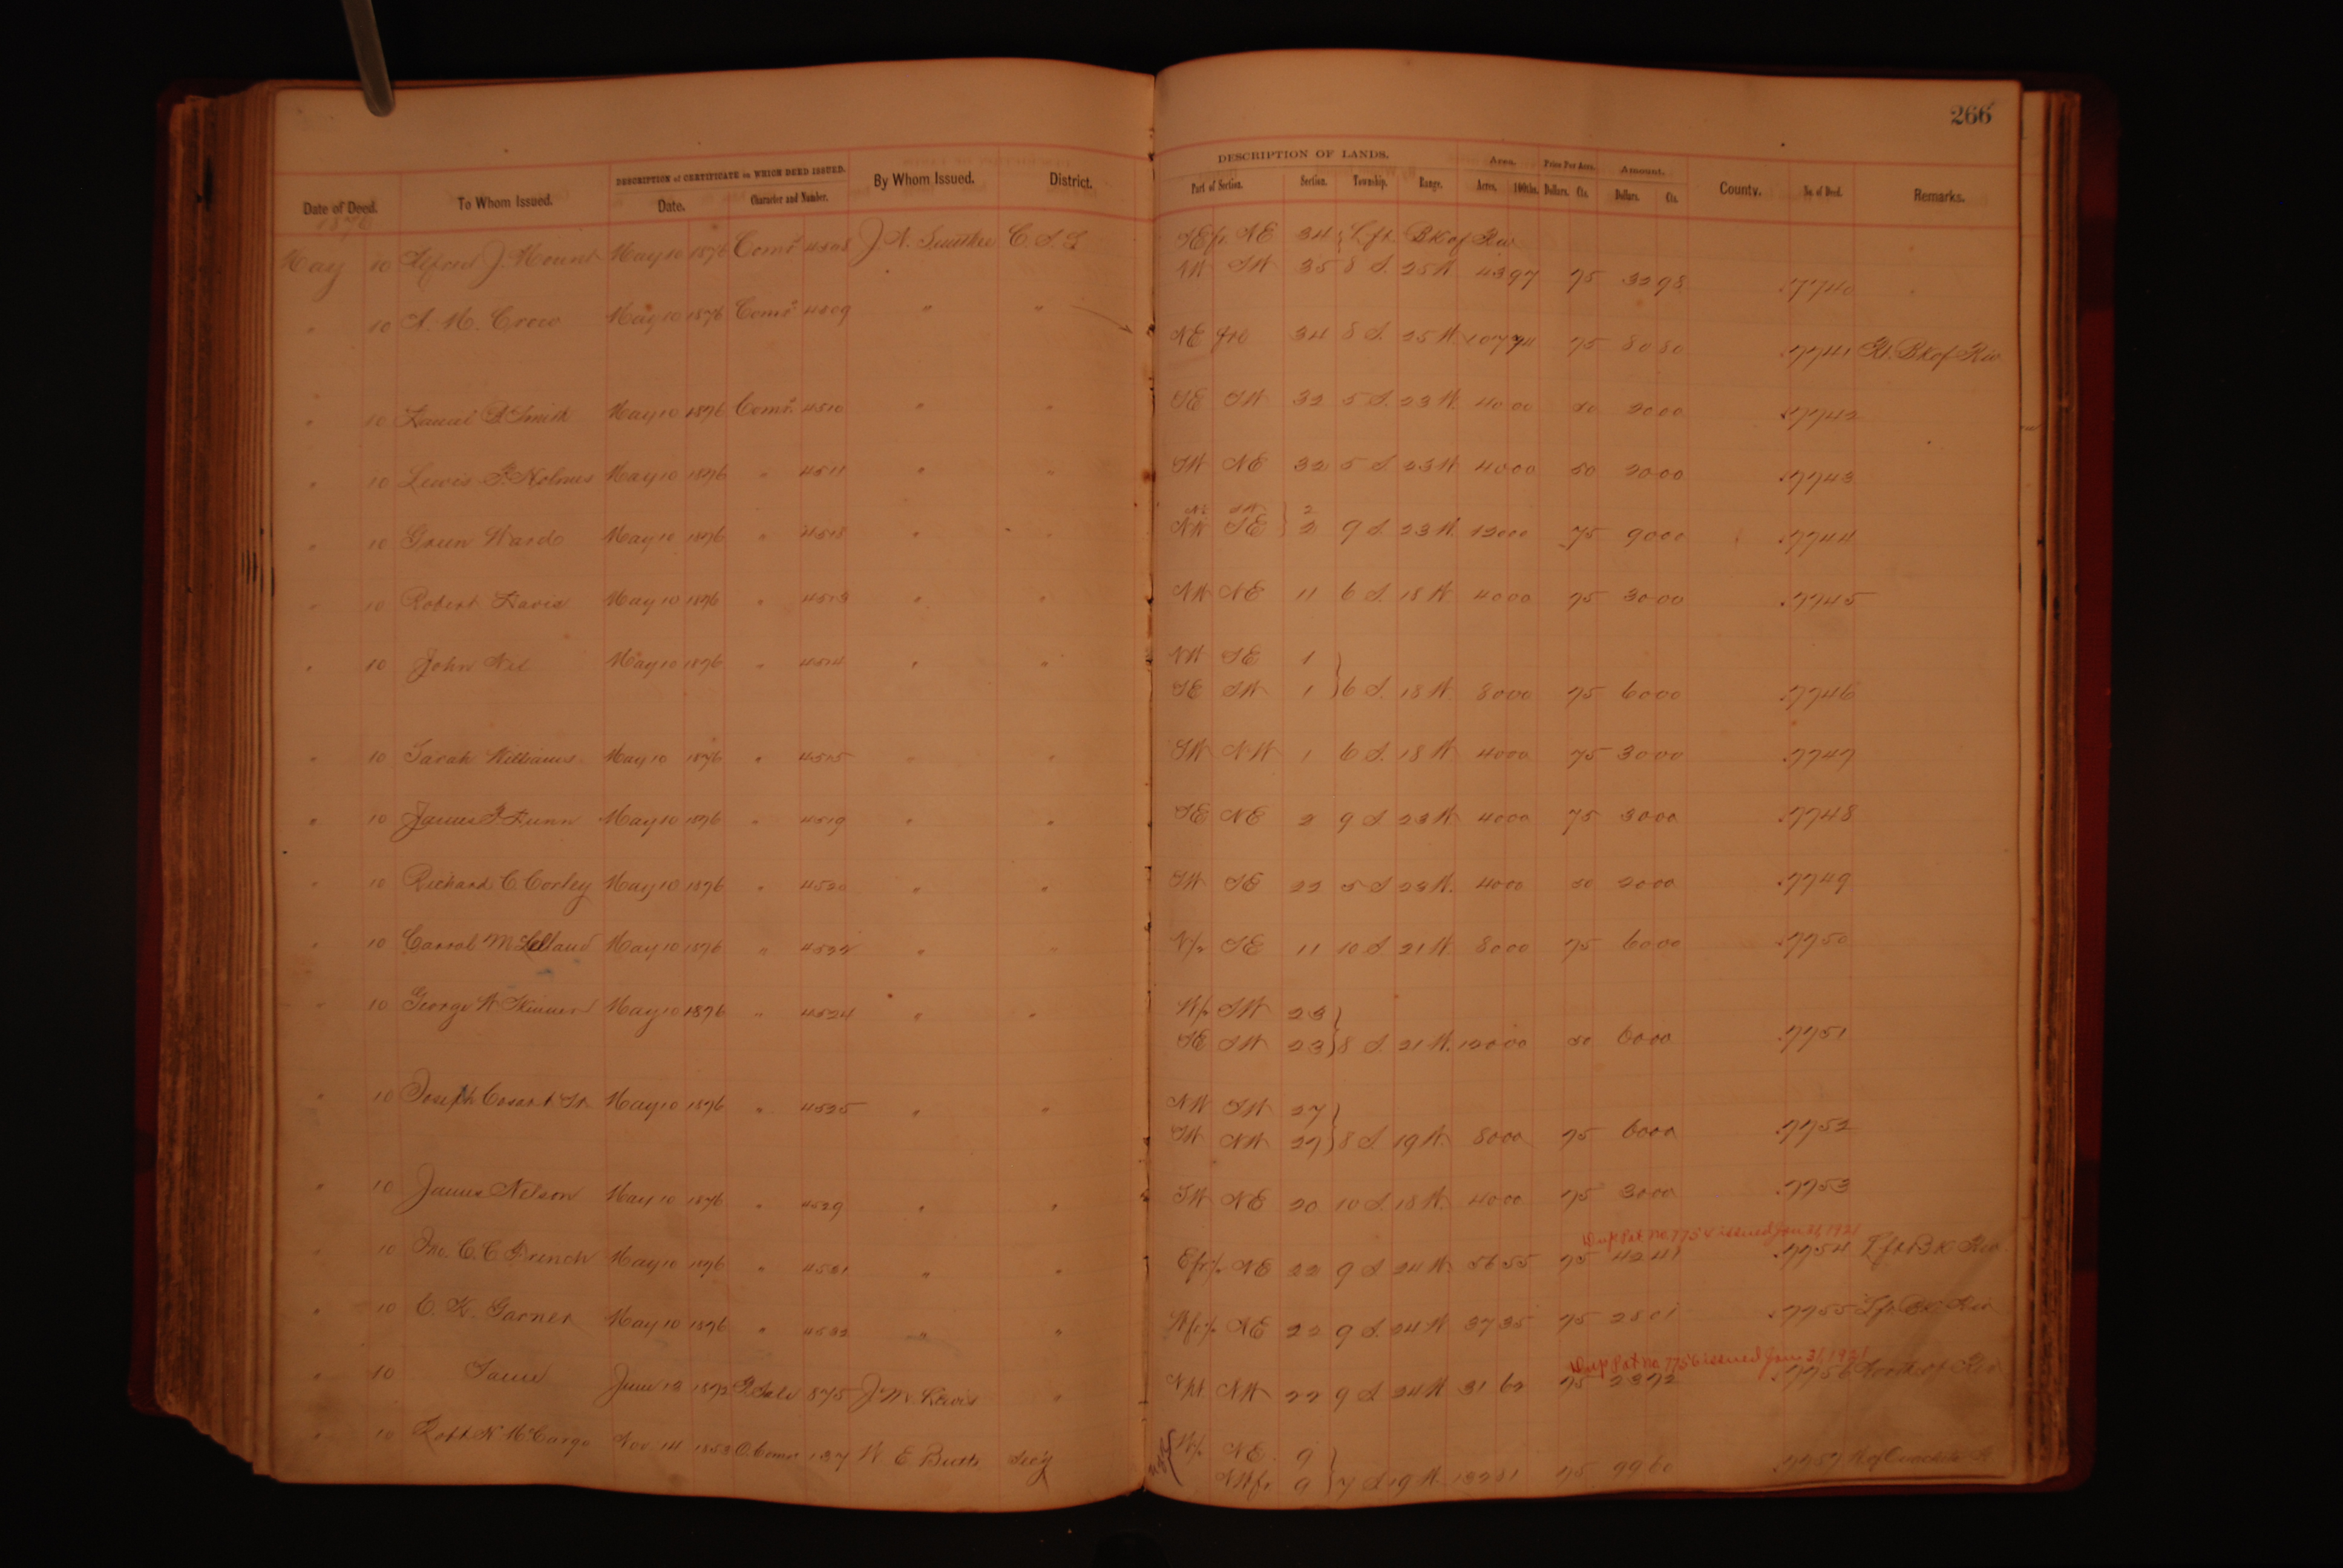 266
DESCRIPTION of CERTIFICATE on WHICH DEED ISSUED. DESCRIPTION OF LANDS. Area. Price Per Acre. Amount.
Date of Deed. To Whom Issued. Date. Character and Number. By Whom Issued. District. Part of Section. Section. Township. Range. Acres. 100ths. Dollars. Cts. Dollars. Cts. County. No. of Deed. Remarks.
1876
May 10 Alfred J. Mount May 10 1876 Coms. 4508 C. S. L SE fr. NE 34 } Lft. Bk of Riv
NW SW 35 8 S. 25 W 43 97 75 32 98 .7740
" 10 A. M. Crow May 10 1876 Coms. 4509 " " NE fro 34 8 S. 25 W 107 74 75 80 80 .7741 Rt. Bk of Riv
" 10 Smith May 10 1876 Coms. 4510 " " SE SW 32 5 S. 23 W. 40 00 50 20 00 .7742
" 10 Lewis F. Holmes May 10 1876 " 4511 " " SW NE 32 5 S 23 W 40 00 50 20 00 .7743
SW 2
" 10 Green Ward May 10 1876 " " " NW SE } 2 9 S 23 W. 120 00 75 90 00 .7744
" 10 Robert Davis May 10 1876 " 4513 " " NW NE 11 6 S. 18 W 40 00 75 30 00 .7745
" 10 John May 10 1876 " 4514 " " NW SE 1 }
SE SW 1 } 6 S. 18 W. 80 00 75 60 00 .7746
" 10 Sarah Williams May 10 1876 " 4515 " " SW NW 1 6 S. 18 W 40 00 75 30 00 .7747
" 10 James F. Dunn May 10 1876 " 4519 " " SE NE 2 9 S 23 W 40 00 75 30 00 .7748
" 10 Richard C. Corley May 10 1876 " 4520 " " SW SE 22 5 S 23 W. 40 00 50 20 00 .7749
" 10 May 10 1876 " 4522 " " N/2 SE 11 10 S 21 W. 80 00 75 60 00 .7750
" 10 George W. May 10 1876 " 4524 " " W/2 SW 23 }
SE SW 23 } 8 S. 21 W. 120 00 50 60 00 .7751
" 10 Joseph May 10 1876 " 4525 " " NW SW 27 }
SW NW 27 } 8 S 19 W. 80 00 75 60 00 .7752
" 10 James Nelson May 10 1876 " 4529 " " SW NE 20 10 S. 18 W. 40 00 75 30 00 .7753
Dup Pat no. 7754 issued Jan 31, 1921
" 10 Jno. C. C. French May 10 1876 " 4531 " " E fr/2 NE 22 9 S 24 W. 56 55 75 42 41 .7754 Lft Bk Riv
" 10 C. K. Garner May 10 1876 " 4532 " " W fr/2 NE 22 9 S. 24 W 37 35 75 28 01 .7755 Lft Bk Riv
Dup Pat no. 7756 issued Jan 31, 1921
" 10 Same June 13 1872 875 J. M. Lewis " NW 22 9 S 24 W 31 62 75 23 72 .7756 of Riv
" 10 Robt. W. McCargo Nov 14 137 W. E. Butts W/2 NE. 9 }
NW fr 9 } 7 S 19 W. 75 99 60 .7757